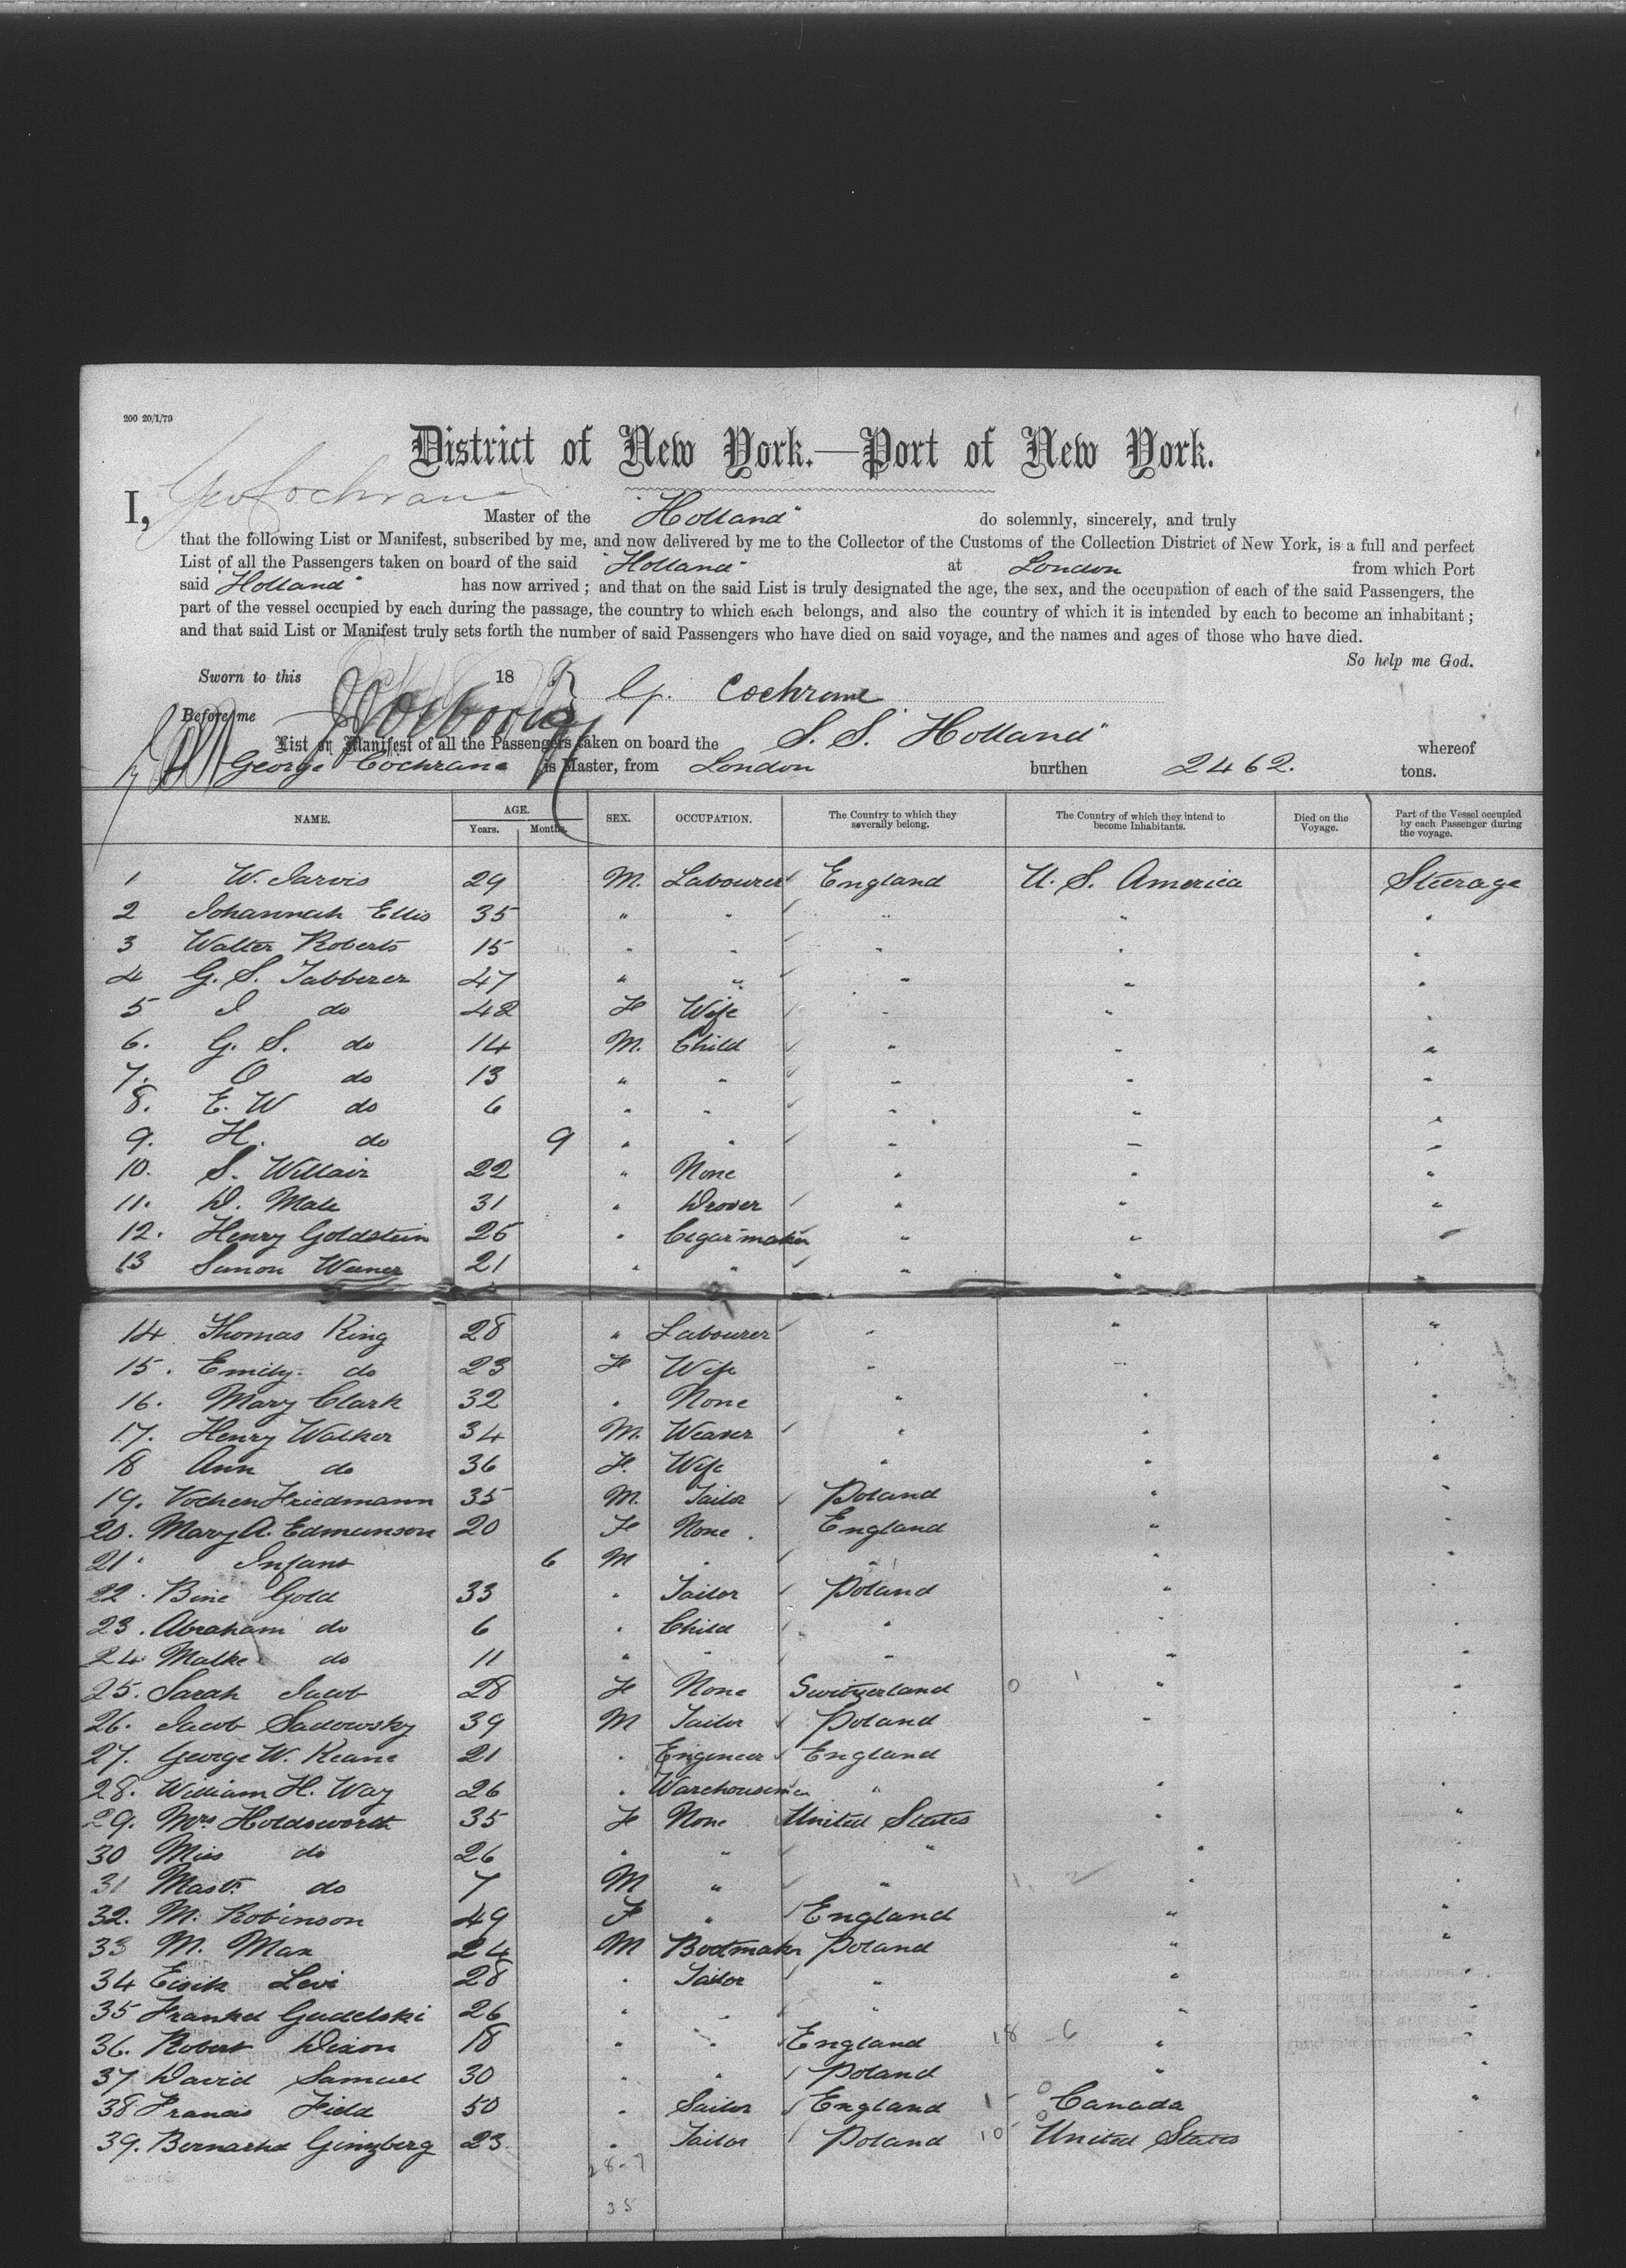 200 20/1/79
District of New York.—Port of New York.
I, Geo Cochrane Master of the "Holland" do solemnly, sincerely, and truly
that the following List or Manifest, subscribed by me, and now delivered by me to the Collector of the Customs of the Collection District of New York, is a full and perfect
List of all the Passengers taken on board of the said "Holland" at London from which Port
said "Holland" has now arrived; and that on the said List is truly designated the age, the sex, and the occupation of each of the said Passengers, the
part of the vessel occupied by each during the passage, the country to which each belongs, and also the country of which it is intended by each to become an inhabitant;
and that said List or Manifest truly sets forth the number of said Passengers who have died on said voyage, and the names and ages of those who have died.
So help me God.
Sworn to this 18 G. Cochrane
Before me
List or Manifest of all the Passengers taken on board the S. S. Holland" whereof
George Cochrane is Master, from London burthen 2462. tons.
NAME. AGE. Years. Months. SEX. OCCUPATION. The Country to which they severally belong. The Country of which they intend to become Inhabitants. Died on the Voyage. Part of the Vessel occupied by each Passenger during the voyage.
1 W. Jarvis 29 M. Labourer England U. S. America Steerage
2 Johannah Ellis 35 " " " " "
3 Walter Roberts 15 " " " " "
4 G. S. Tabberer 47 " " " " "
5 I do 42 F Wife " " "
6. G. S. do 14 M. Child " " "
7. O do 13 " " " " "
8. E. W do 6 " " " " "
9. H. do 9 " " " " "
10. S. Willair 22 " None " " "
11. D. Male 31 " Drover " " "
12. Henry Goldstein 25 " Cigar maker " " "
13 Simon Weener 21 " " " " "
14 Thomas King 28 " Labourer " " "
15. Emily. do 23 F Wife " " "
16. Mary Clark 32 " None " " "
17. Henry Walker 34 M. Weaver " " "
18 Ann do 36 F. Wife " " "
19. Vochen Friedmann 35 M. Tailor Poland " "
20. Mary A. Edmunson 20 F None. England " "
21. Infant 6 M " " " "
22. Bine Gold 33 " Tailor Poland " "
23. Abraham do 6 " Child " " "
24 Malke do 11 " " " " "
25. Sarah Jacob 28 F None Switzerland " "
26. Jacob Sadowsky 39 M Tailor Poland "
27. George W. Keane 21 " Engineer England
28. William H. Way 26 " Warehouseman " " "
29. Mrs Holdsworth 35 F None United States " "
30 Miss do 26 " " " "
31 Mastr. do 7 M " " " "
32. M. Robinson 49 F " England " "
33 M. Max 24 M Bootmaker Poland " "
34 Eisik Levi 28 " Tailor " " "
35 Frankel Gudelski 26 " " " " "
36. Robert Dixon 18 " " England 18 - 6 " "
37 David Samuel 30 " " Poland " "
38 Francis Field 50 " Sailor England 1 Canada "
39. Bernarhd Ginzberg 23 " Tailor Poland 10 United States "
28-7
35